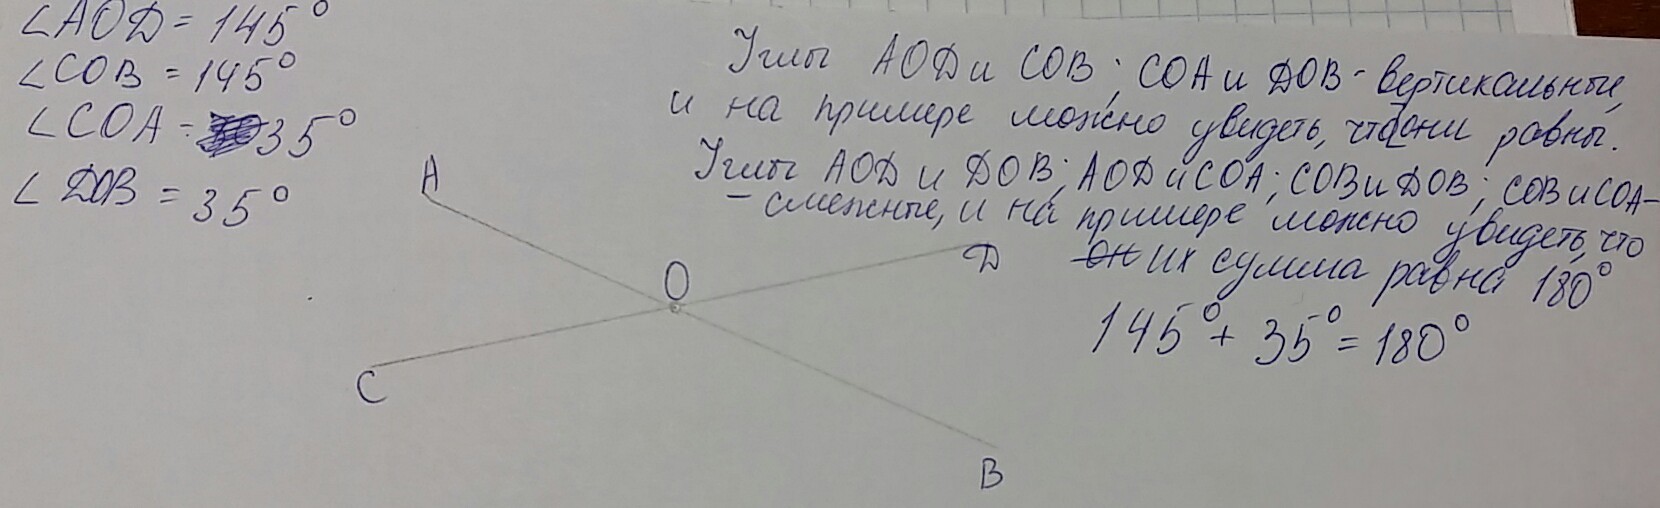 ∠AOD = 145°
∠COB = 145°
∠COA = 35°
∠DOB = 35°
Углы AOD и COB; COA и DOB - вертикальные,
и на примере можно увидеть, что они равны.
Углы AOD и DOB; AOD и COA; COB и DOB; COB и COA -
- смежные, и на примере можно увидеть, что
их сумма равна 180°
145° + 35° = 180°
A
O
D
C
B